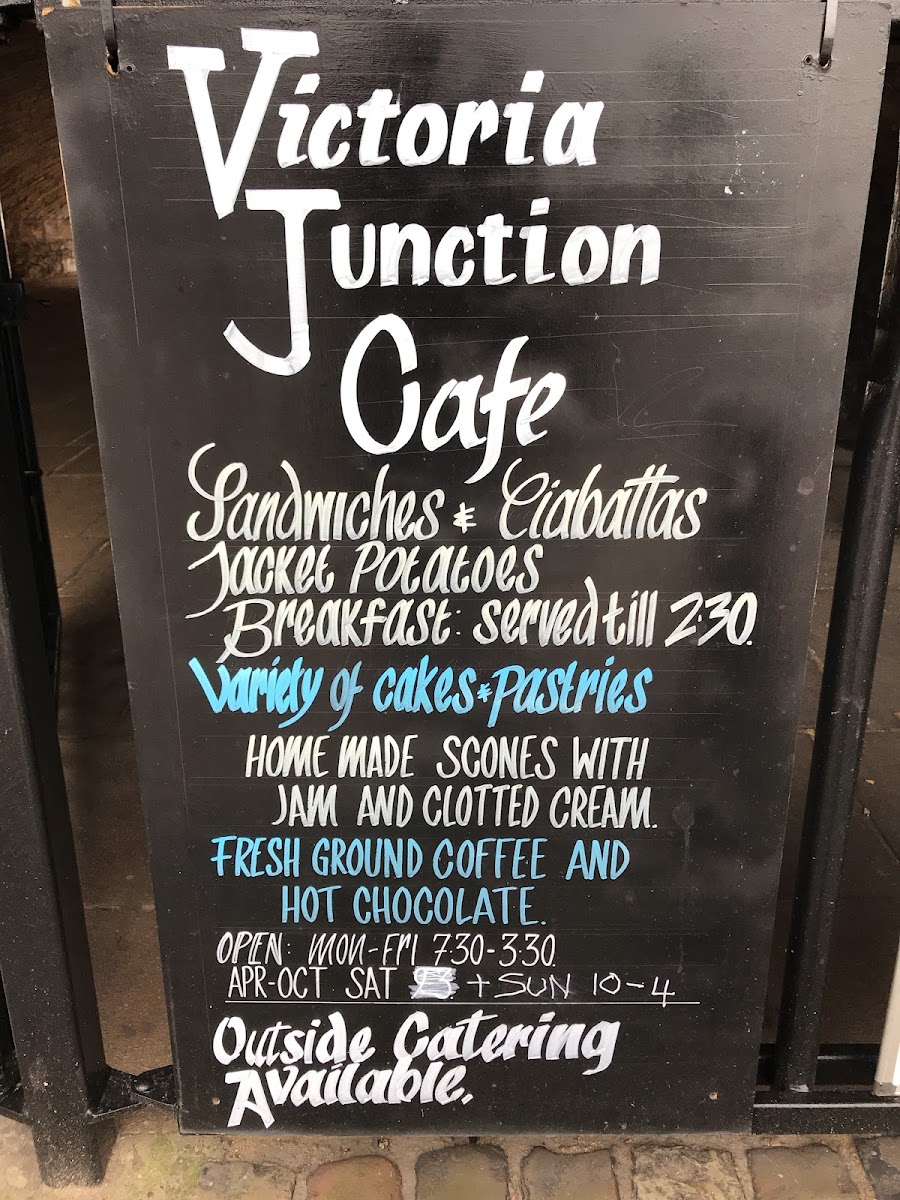 Victoria
Junction
Cafe
Sandwiches & Ciabattas
Jacket Potatoes
Breakfast: served till 2:30.
Variety of cakes & Pastries
HOME MADE SCONES WITH
JAM AND CLOTTED CREAM.
FRESH GROUND COFFEE AND
HOT CHOCOLATE.
OPEN: MON-FRI 7:30-3:30.
APR-OCT SAT + SUN 10-4
Outside Catering
Available.